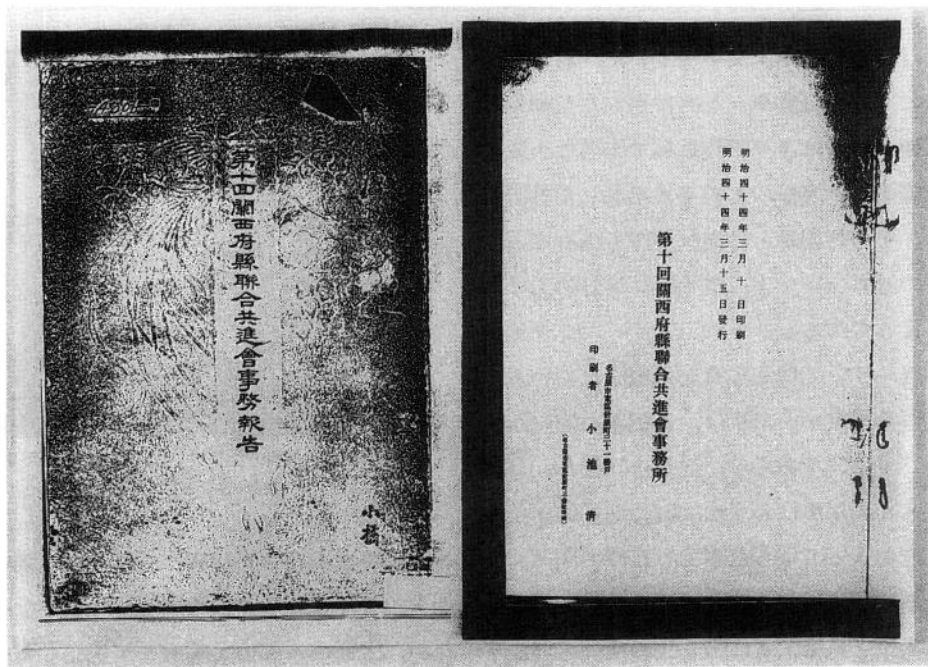 第十回關西府縣聯合共進會事務報告
小橋
明治四十四年三月 十 日印刷
明治四十四年三月十五日發行
第十回關西府縣聯合共進會事務所
印刷者 小池淸